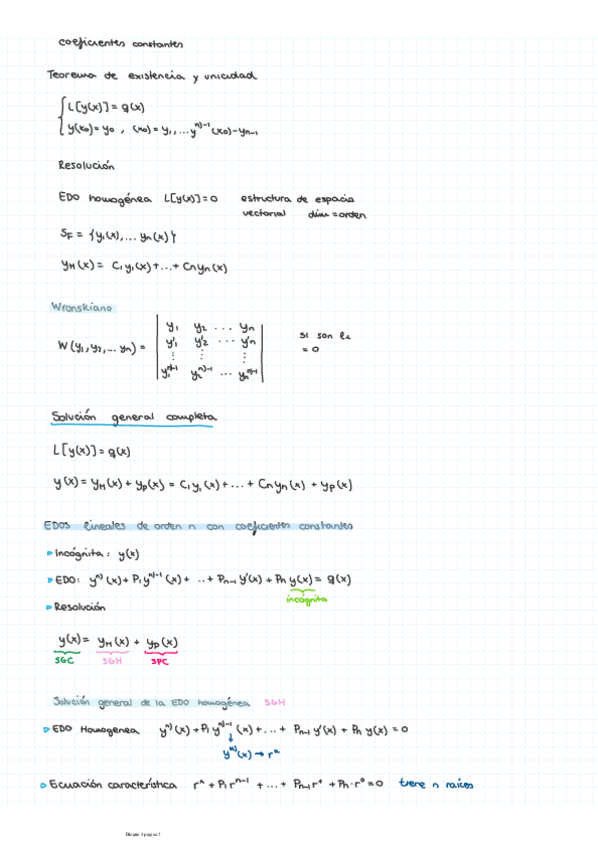 coeficientes constantes
Teorema de existencia y unicidad
{ L[y(x)] = g(x)
y(x₀) = y₀ , (x₀) = y₁, ... yⁿ⁾⁻¹(x₀) - yₙ₋₁
Resolución
EDO homogénea L[y(x)] = 0 estructura de espacio
vectorial dim = orden
S_F = {y₁(x), ... yₙ(x)}
y_H(x) = C₁y₁(x) + ... + Cₙyₙ(x)
Wronskiano
W(y₁, y₂, ... yₙ) =
y₁ y₂ ... yₙ
y'₁ y'₂ ... y'ₙ
⋮ ⋮ ⋮
y₁ⁿ⁾⁻¹ y₂ⁿ⁾⁻¹ ... yₙⁿ⁾⁻¹
si son
= 0
Solución general completa
L[y(x)] = g(x)
y(x) = y_H(x) + y_p(x) = C₁y₁(x) + ... + Cₙyₙ(x) + y_p(x)
EDOs lineales de orden n con coeficientes constantes
▷ Incógnita: y(x)
▷ EDO: yⁿ⁾(x) + P₁yⁿ⁾⁻¹(x) + ... + Pₙ₋₁ y'(x) + Pₙ y(x) = g(x)
incógnita
▷ Resolución
y(x) = y_H(x) + y_p(x)
SGC SGH SPC
Solución general de la EDO homogénea SGH
▷ EDO Homogenea yⁿ⁾(x) + P₁yⁿ⁾⁻¹(x) + ... + Pₙ₋₁ y'(x) + Pₙ y(x) = 0
↓
yᵏ⁾(x) → rᵏ
▷ Ecuación característica rⁿ + P₁rⁿ⁻¹ + ... + Pₙ₋₁r¹ + Pₙ·r⁰ = 0 tiene n raíces
Bloque 3 página 2